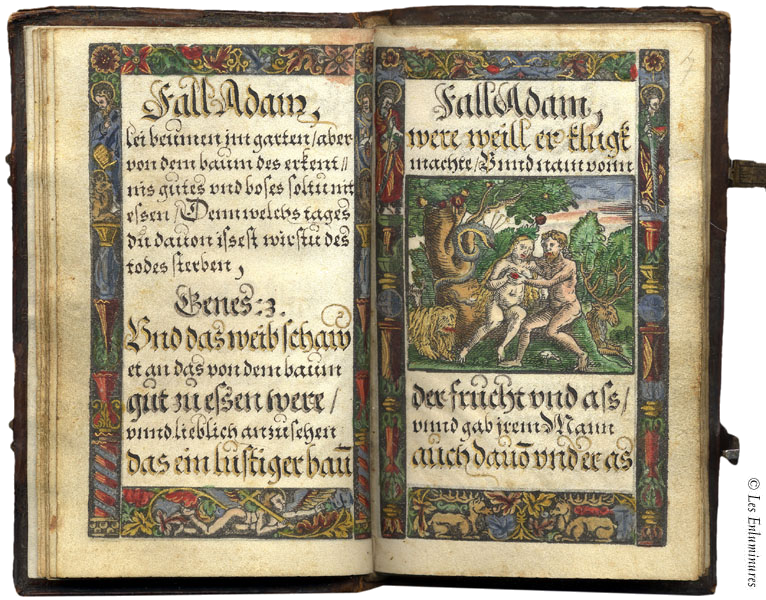 Fall Adam,
lei beumen im garten/aber
von dem baum des erkent//
nis gutes vnd boses soltu nit
essen/Denn welchs tages
du dauon issest wirstu des
todes sterben,
Genes:3.
Vnd das weib schaw
et an das von dem baum
gut zu essen were/
vnnd lieblich anzusehen
das ein lustiger baū
Fall Adam,
were weill er klugk
machte/Vnnd nam vonn
der frucht vnd ass/
vnnd gab jrem Mann
auch dauō vnd er as
© Les Enluminures